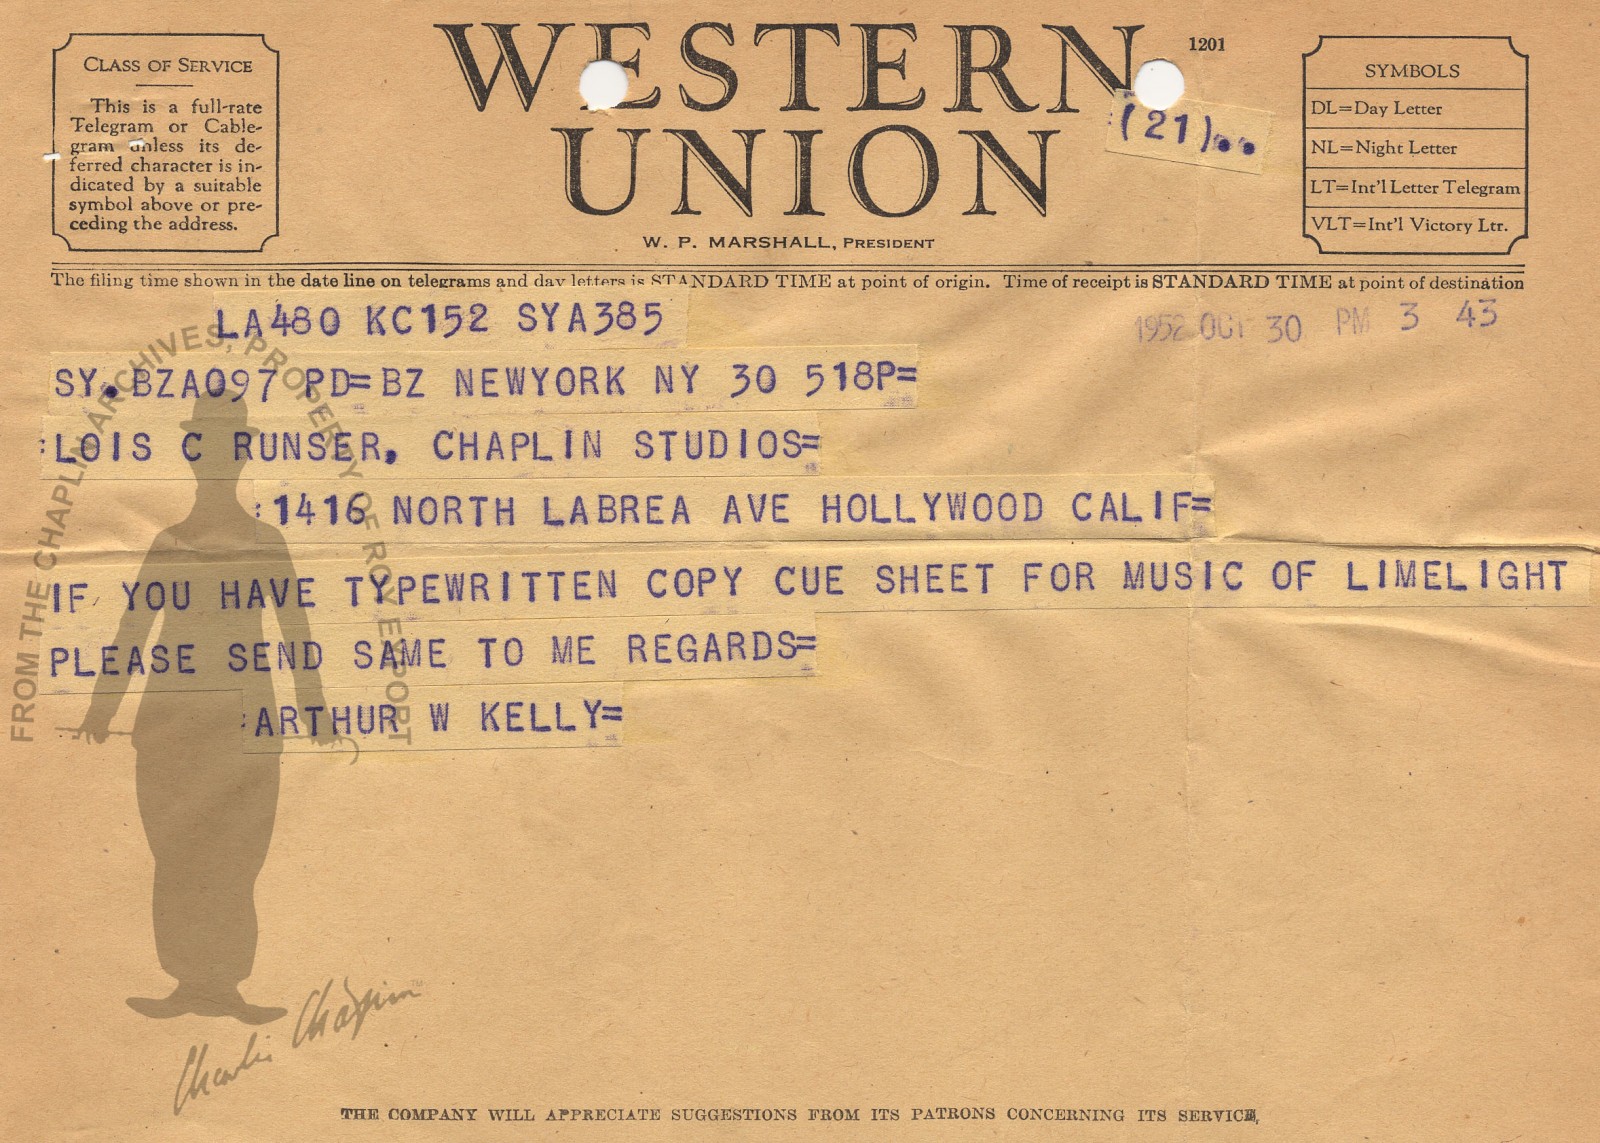 CLASS OF SERVICE
This is a full-rate
Telegram or Cable-
gram unless its de-
ferred character is in-
dicated by a suitable
symbol above or pre-
ceding the address.
WESTERN
UNION
1201
(21)..
W. P. MARSHALL, PRESIDENT
SYMBOLS
DL=Day Letter
NL=Night Letter
LT=Int'l Letter Telegram
VLT=Int'l Victory Ltr.
The filing time shown in the date line on telegrams and day letters is STANDARD TIME at point of origin. Time of receipt is STANDARD TIME at point of destination
LA480 KC152 SYA385
1952 OCT 30 PM 3 43
SY.BZA097 PD=BZ NEWYORK NY 30 518P=
:LOIS C RUNSER, CHAPLIN STUDIOS=
:1416 NORTH LABREA AVE HOLLYWOOD CALIF=
IF YOU HAVE TYPEWRITTEN COPY CUE SHEET FOR MUSIC OF LIMELIGHT
PLEASE SEND SAME TO ME REGARDS=
:ARTHUR W KELLY=
FROM THE CHAPLIN ARCHIVES, PROPERTY OF ROY EXPORT
Charlie Chaplin
THE COMPANY WILL APPRECIATE SUGGESTIONS FROM ITS PATRONS CONCERNING ITS SERVICE.